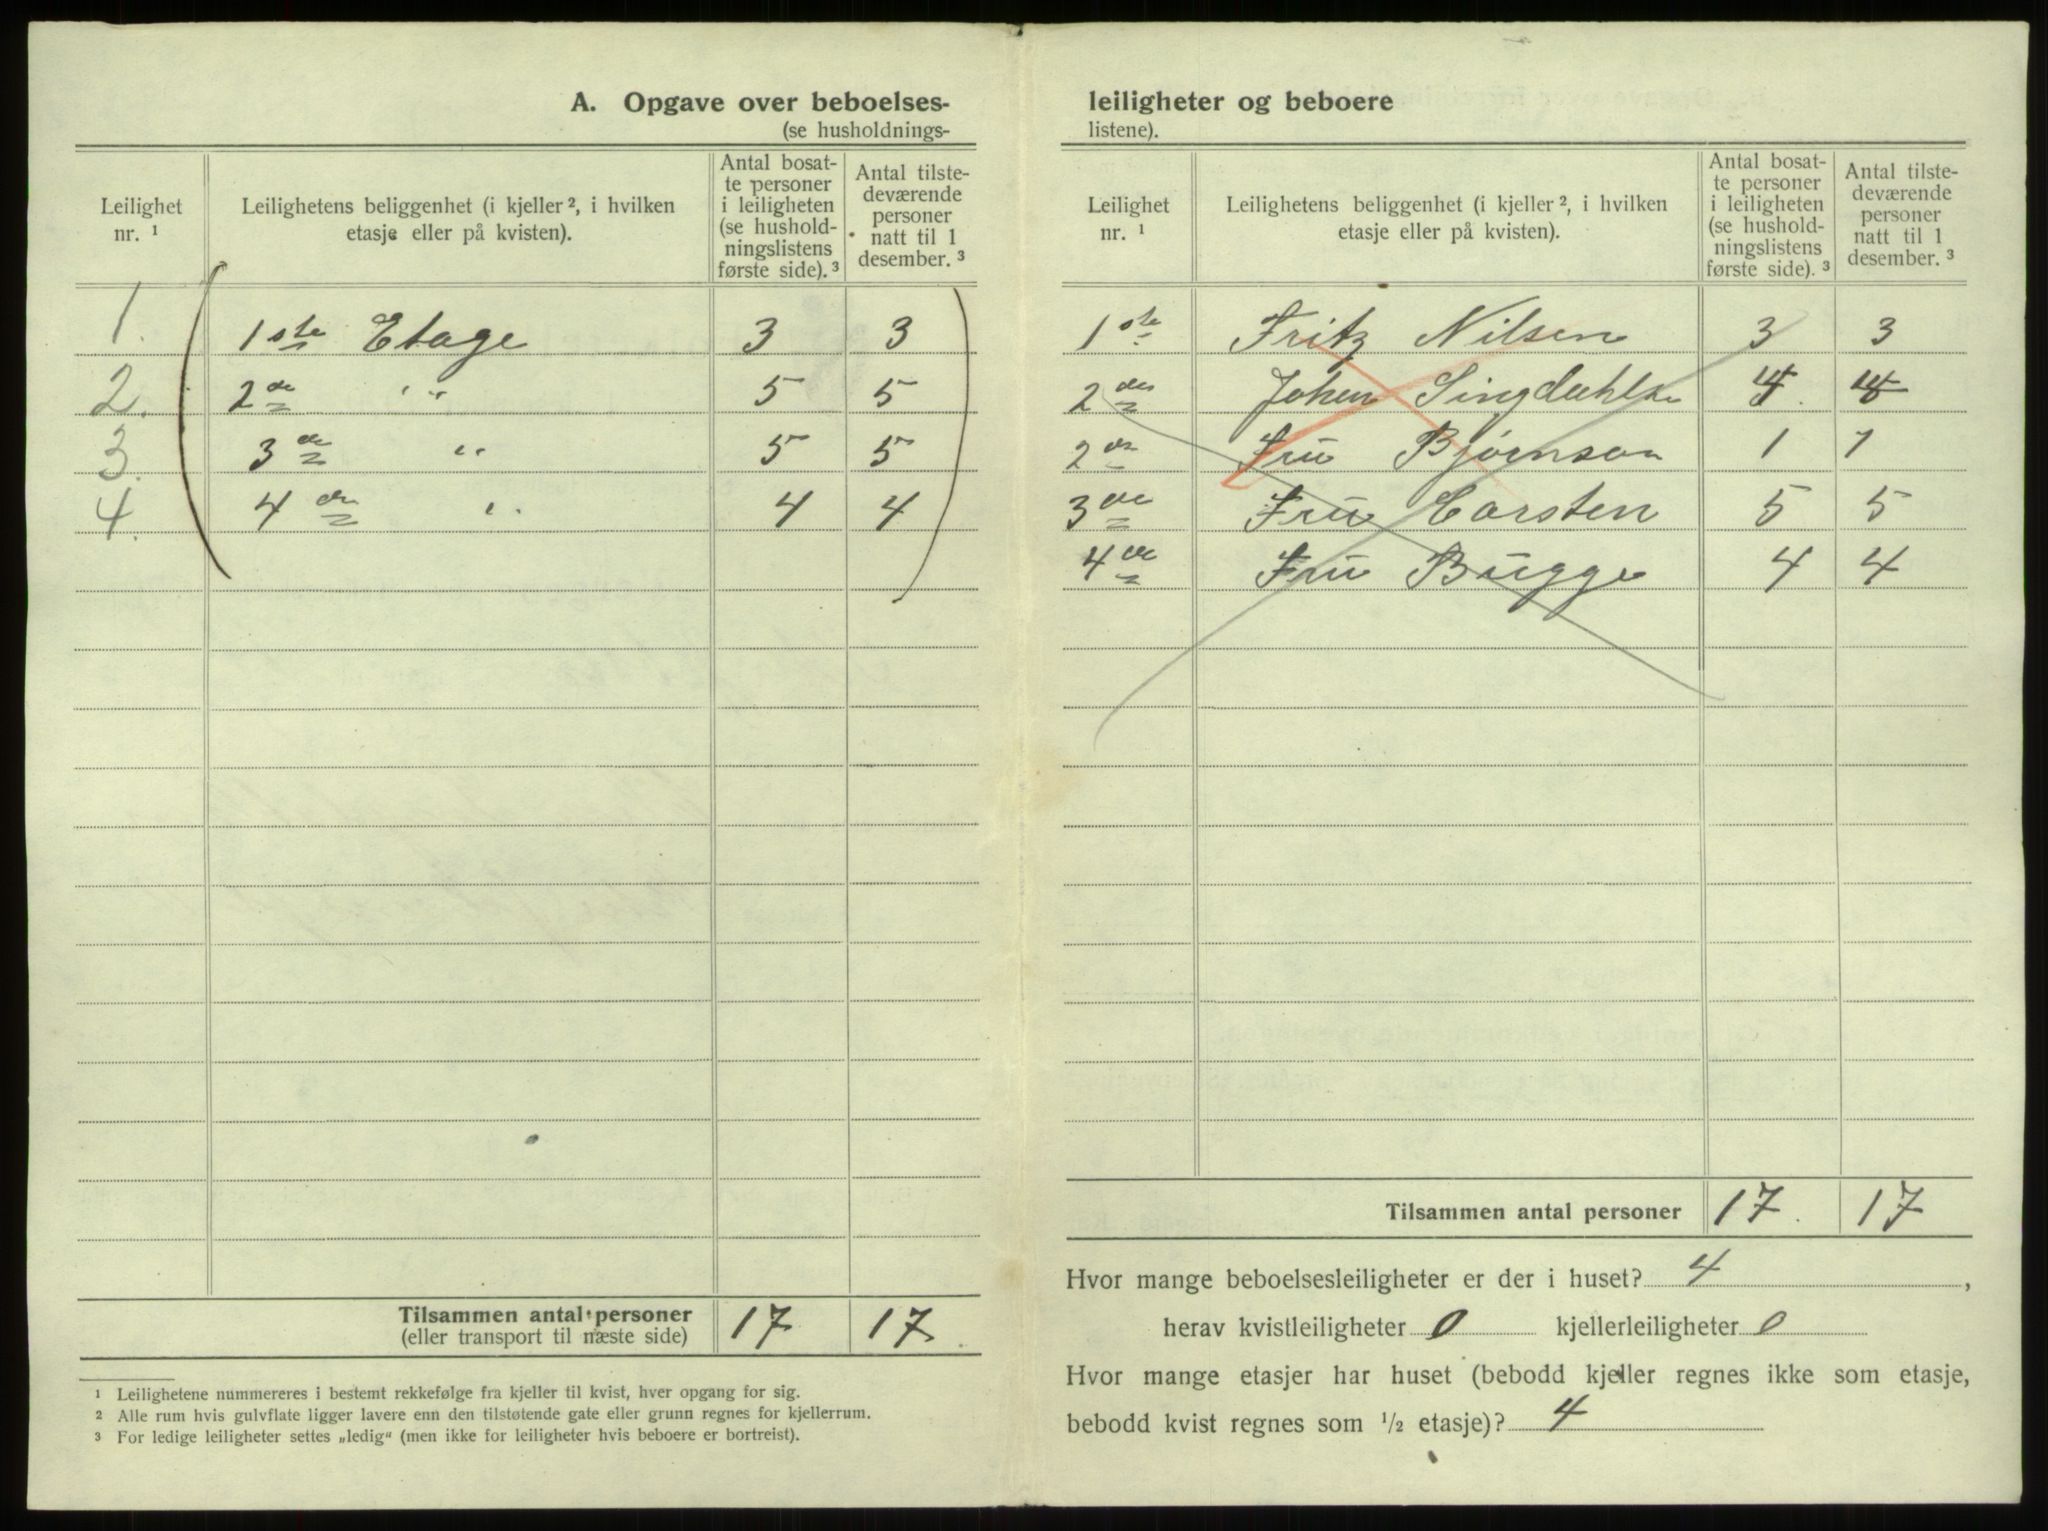 A. Opgave over beboelses-
(se husholdnings-
Leilighet nr. ¹
Leilighetens beliggenhet (i kjeller ², i hvilken etasje eller på kvisten).
Antal bosat-te personer i leiligheten (se hushold-ningslistens første side). ³
Antal tilste-deværende personer natt til 1 desember. ³
1. 1ste Etage 3 3
2. 2de " 5 5
3. 3de " 5 5
4. 4de " 4 4
Tilsammen antal personer 17 17
(eller transport til næste side)
¹ Leilighetene nummereres i bestemt rekkefølge fra kjeller til kvist, hver opgang for sig.
² Alle rum hvis gulvflate ligger lavere enn den tilstøtende gate eller grunn regnes for kjellerrum.
³ For ledige leiligheter settes „ledig" (men ikke for leiligheter hvis beboere er bortreist).
leiligheter og beboere
listene).
Leilighet nr. ¹
Leilighetens beliggenhet (i kjeller ², i hvilken etasje eller på kvisten).
Antal bosat-te personer i leiligheten (se hushold-ningslistens første side). ³
Antal tilste-deværende personer natt til 1 desember. ³
1ste Fritz Nilsen 3 3
2de Johan 4 4
2de Fru Bjørnson 1 1
3de Fru Carsten 5 5
4de Fru Bugge 4 4
Tilsammen antal personer 17. 17
Hvor mange beboelsesleiligheter er der i huset? 4,
herav kvistleiligheter 0 kjellerleiligheter 0
Hvor mange etasjer har huset (bebodd kjeller regnes ikke som etasje,
bebodd kvist regnes som ½ etasje)? 4